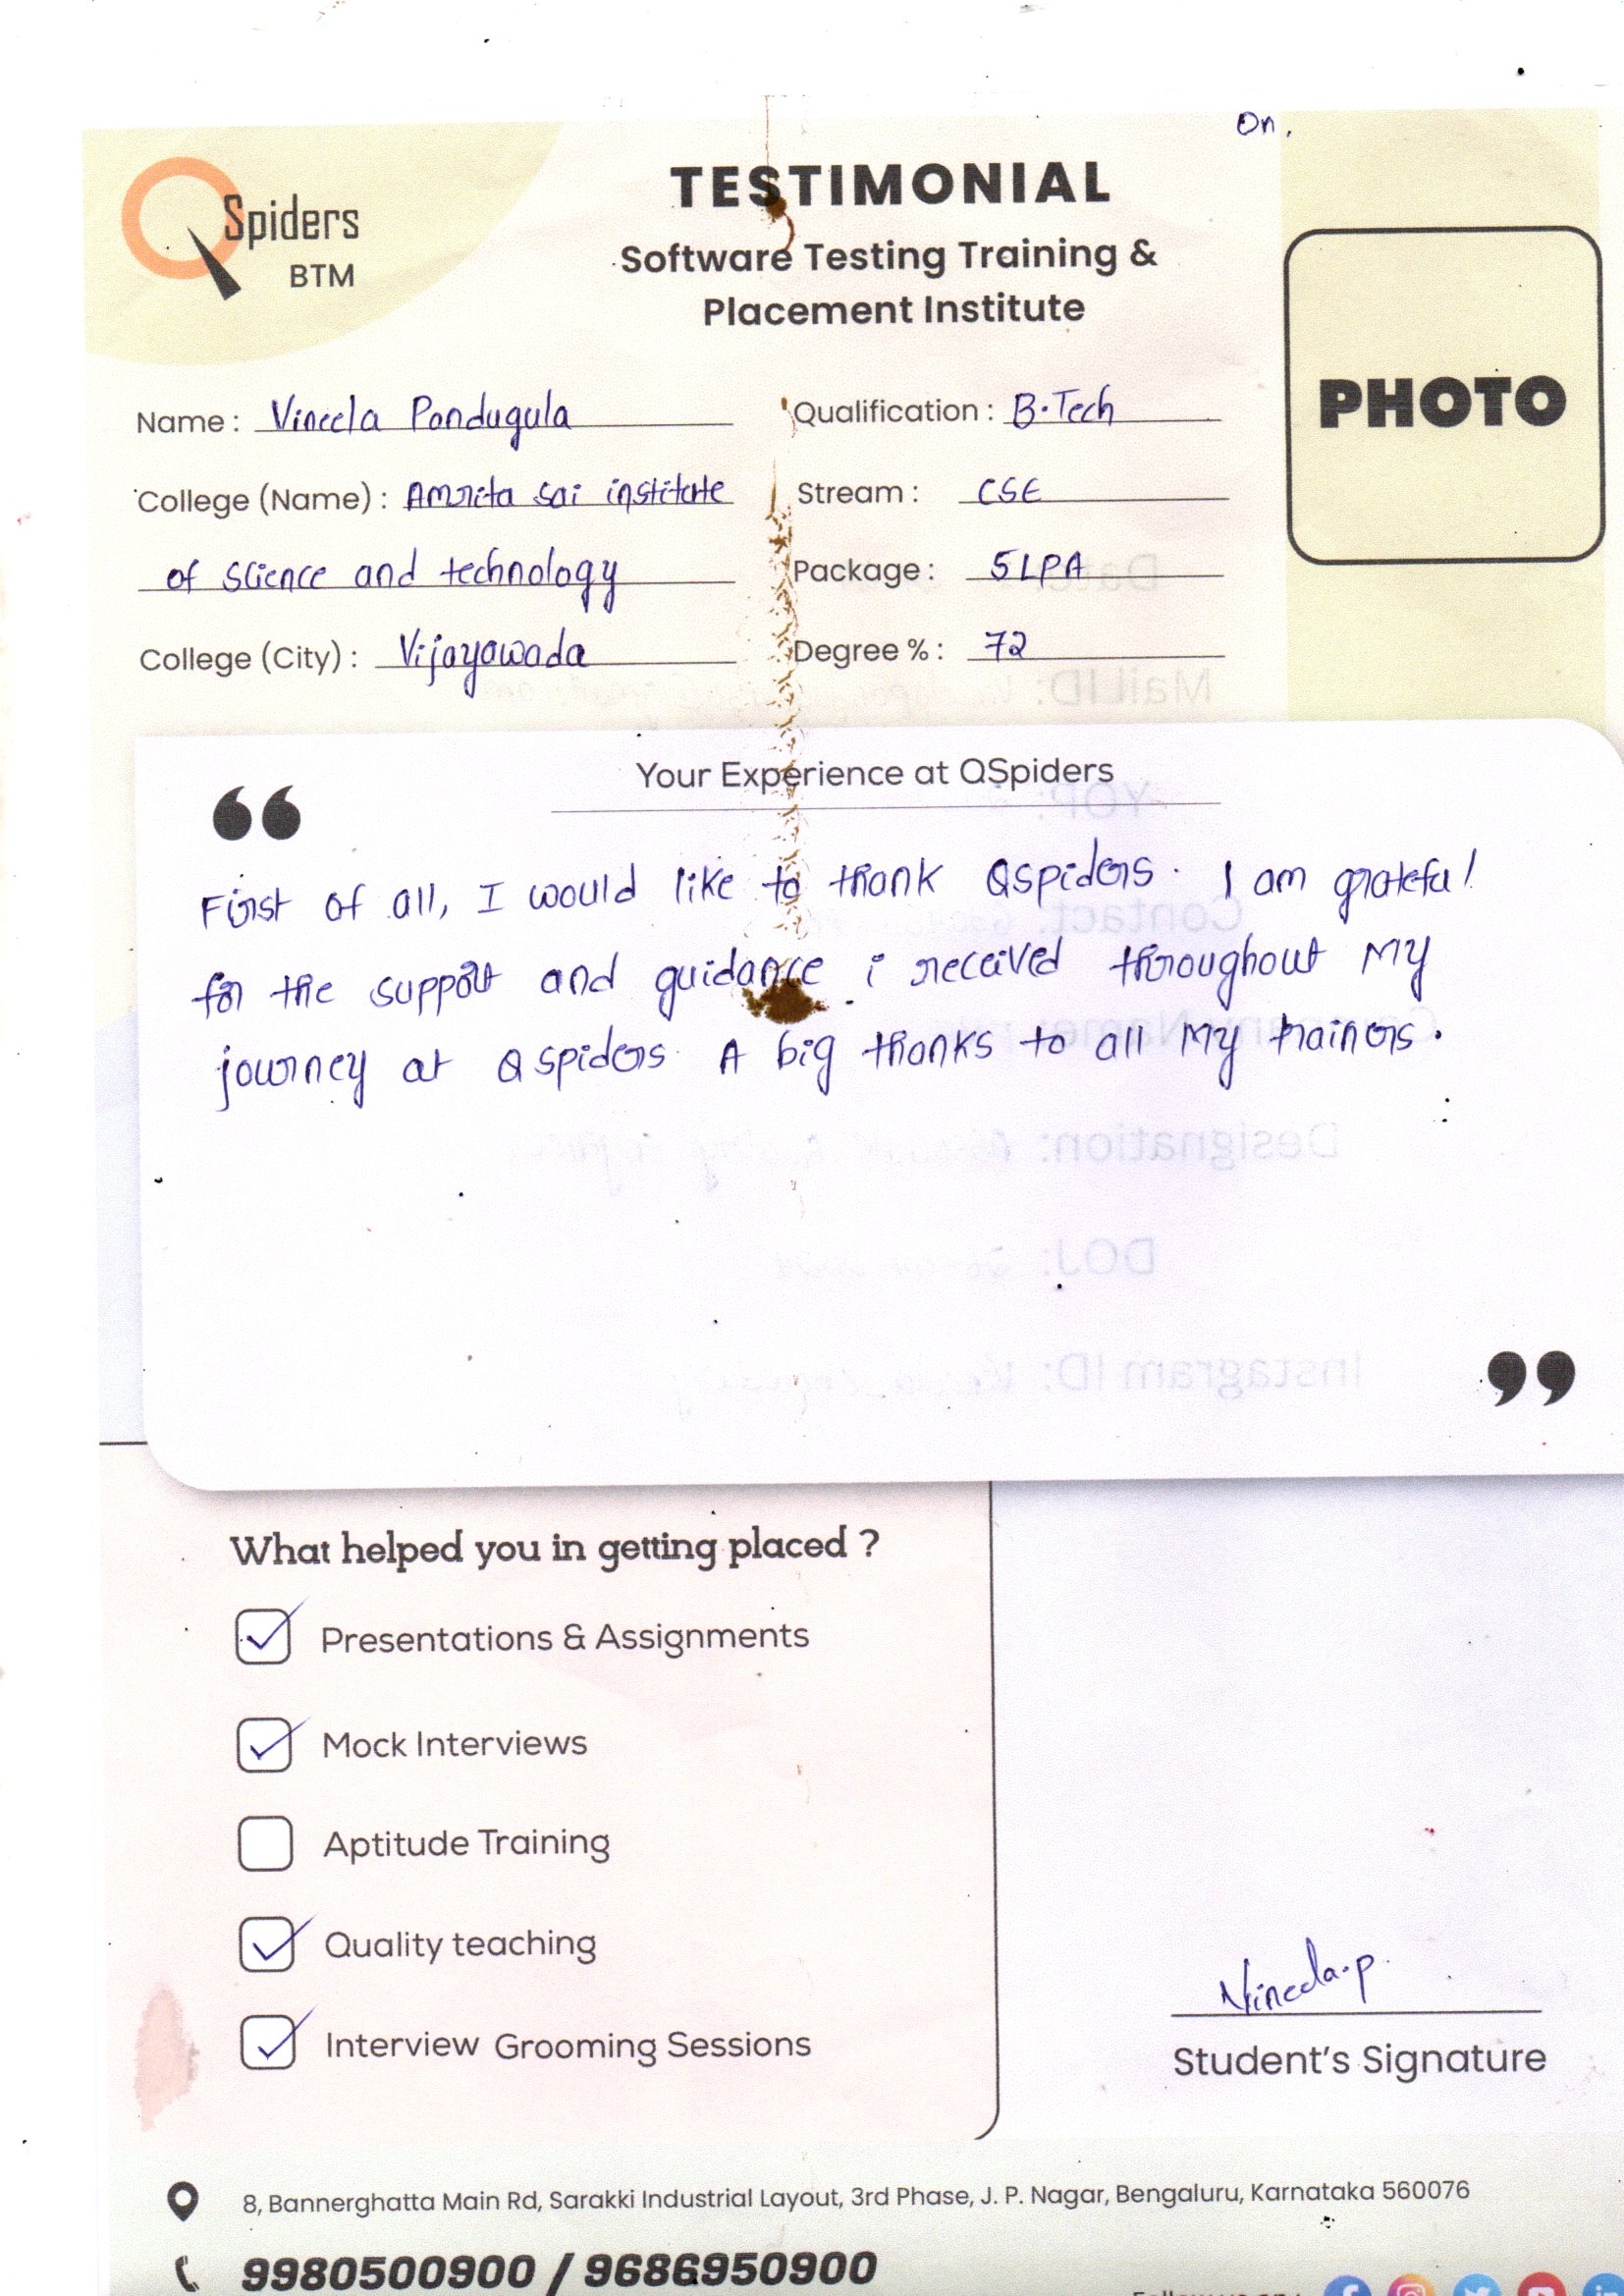 On,
QSpiders
BTM
TESTIMONIAL
Software Testing Training &
Placement Institute
PHOTO
Name : Vineela Pandugula
Qualification : B.Tech
College (Name) : Amrita sai institute
Stream : CSE
of science and technology
Package : 5LPA
College (City) : Vijayawada
Degree % : 72
Your Experience at QSpiders
“
First of all, I would like to thank Qspiders. I am grateful
for the support and guidance i received throughout My
journey at Qspiders. A big thanks to all My trainers.
”
What helped you in getting placed ?
Presentations & Assignments
Mock Interviews
Aptitude Training
Quality teaching
Interview Grooming Sessions
Vineela.p
Student's Signature
8, Bannerghatta Main Rd, Sarakki Industrial Layout, 3rd Phase, J. P. Nagar, Bengaluru, Karnataka 560076
9980500900 / 9686950900